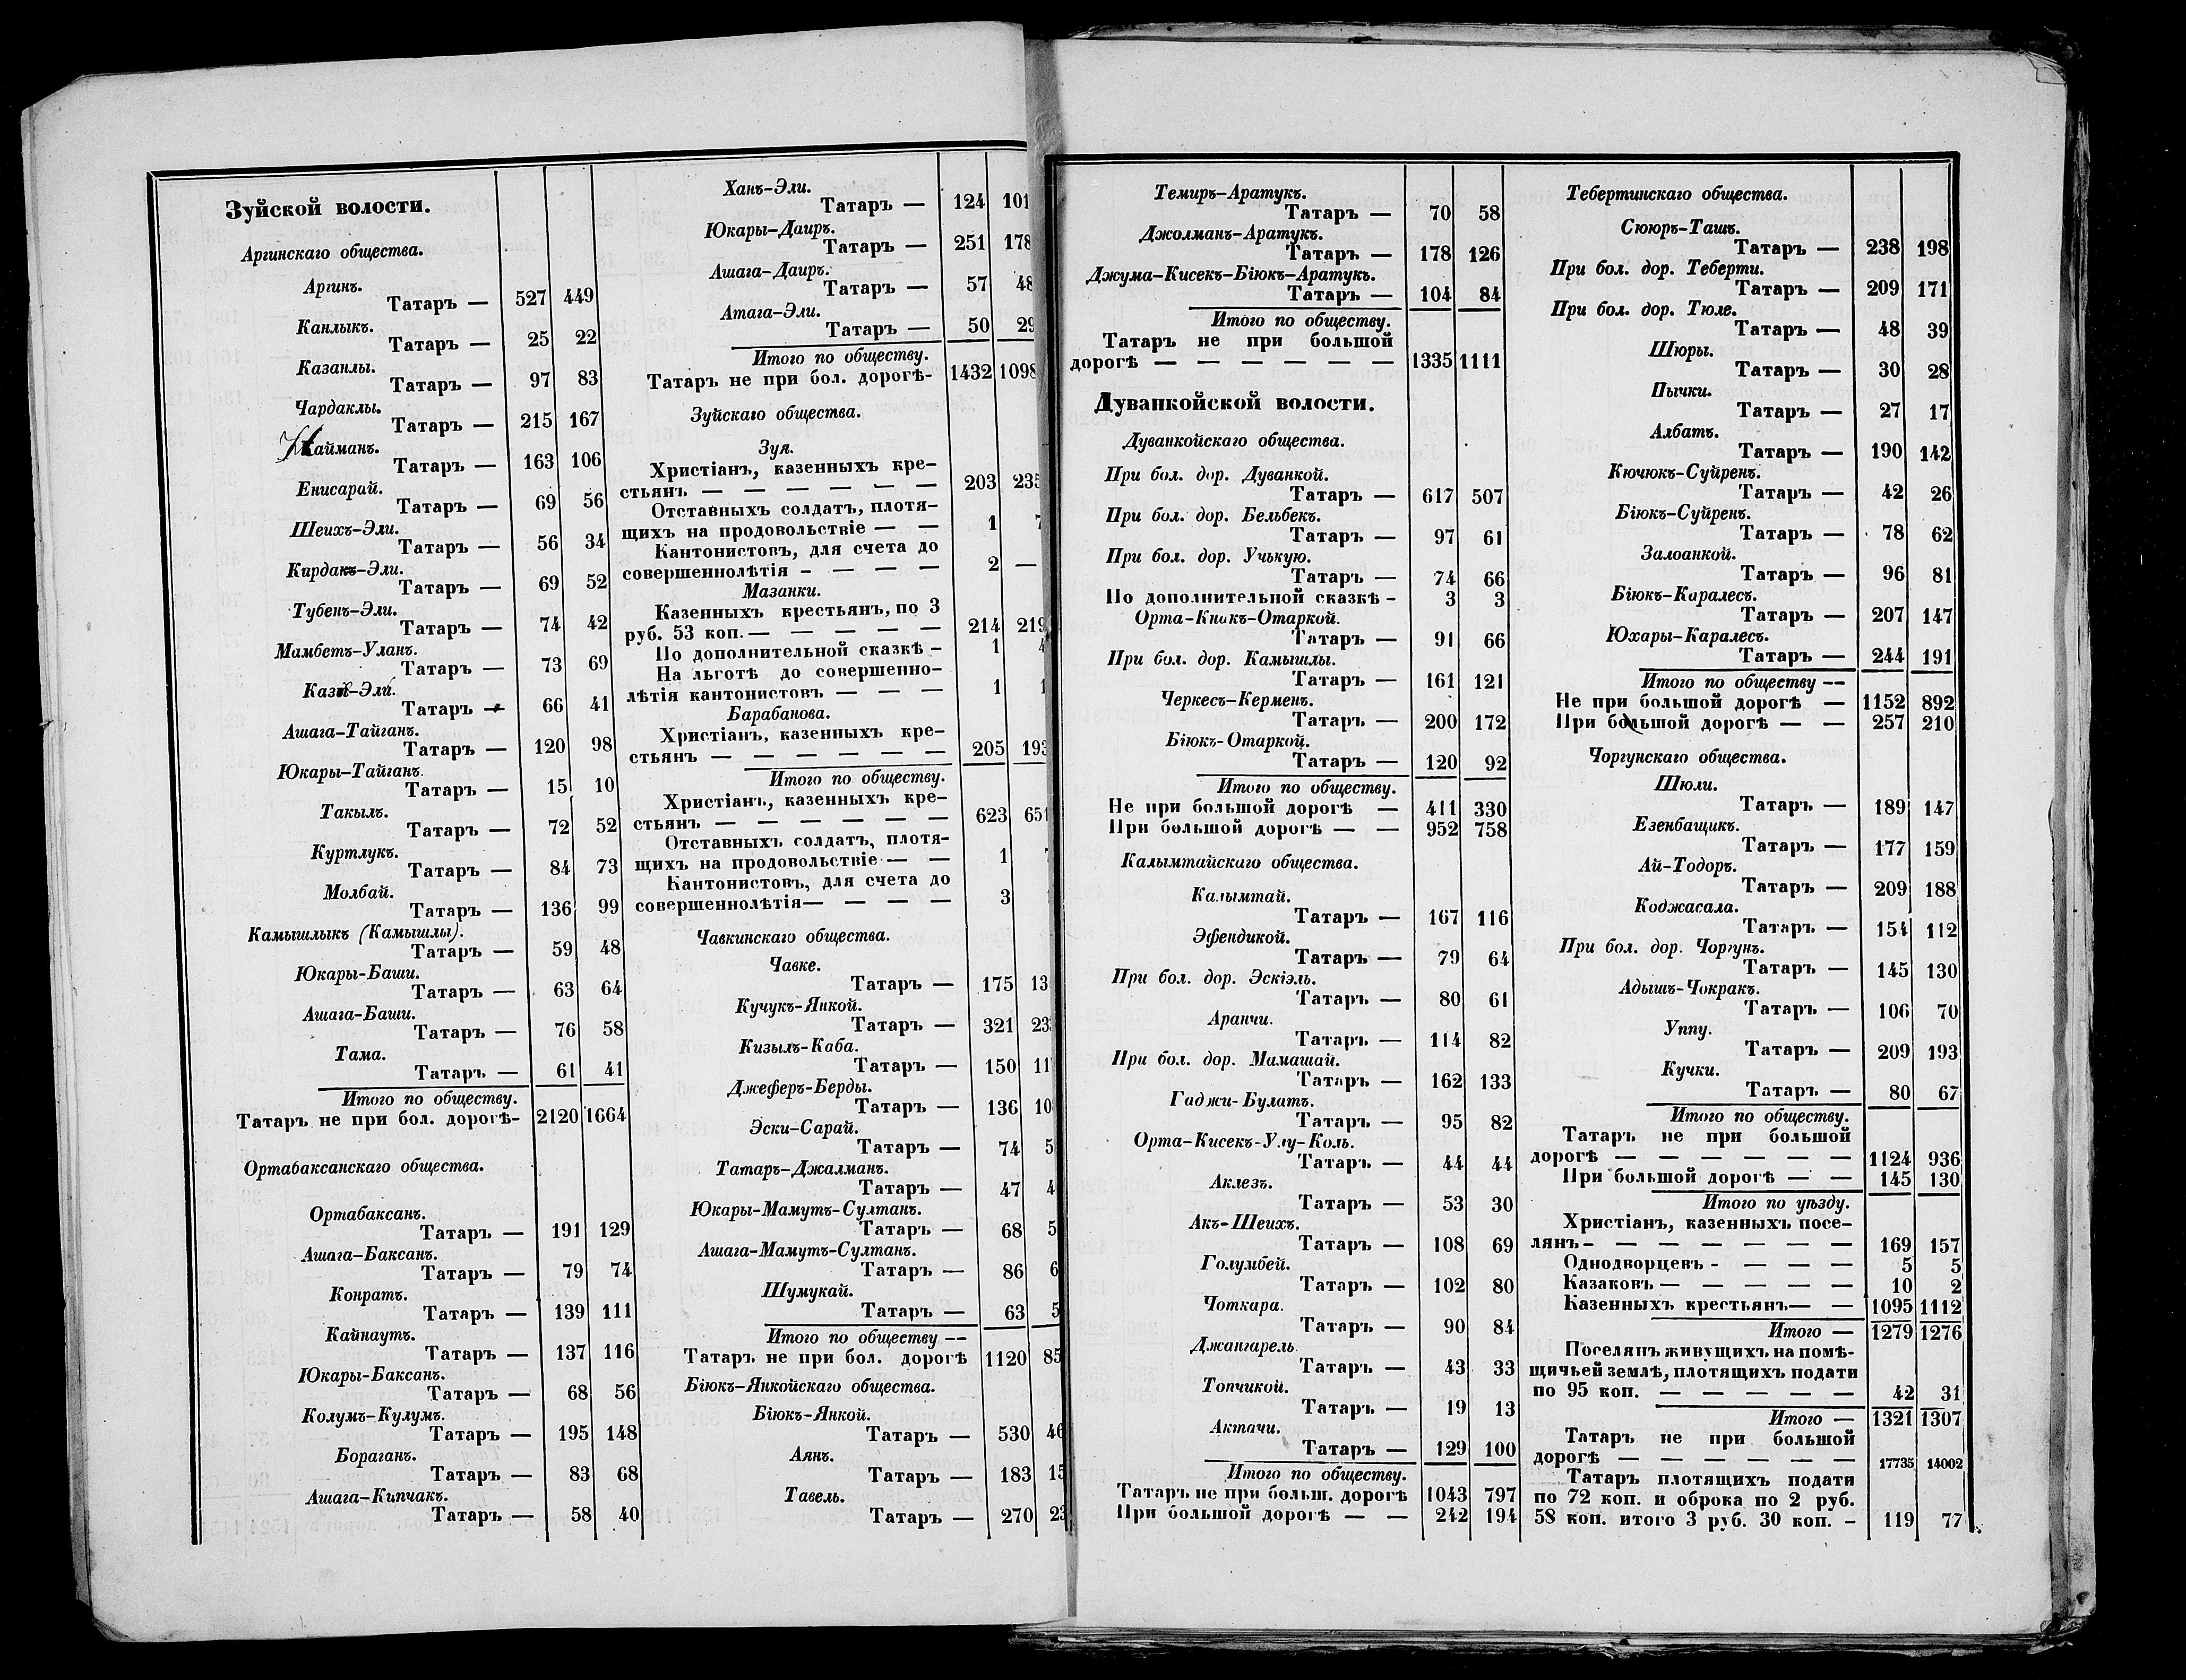 Зуйской волости.
Аргинскаго общества.
Аргинъ.
Татаръ — 527 449
Канлыкъ.
Татаръ — 25 22
Казанлы.
Татаръ — 97 83
Чардаклы.
Татаръ — 215 167
Найманъ.
Татаръ — 163 106
Енисарай.
Татаръ — 69 56
Шеихъ-Эли.
Татаръ — 56 34
Кирдакъ-Эли.
Татаръ — 69 52
Тубенъ-Эли.
Татаръ — 74 42
Мамбетъ-Уланъ.
Татаръ — 73 69
Казы-Эли.
Татаръ — 66 41
Ашага-Тайганъ.
Татаръ — 120 98
Юкары-Тайганъ.
Татаръ — 15 10
Такылъ.
Татаръ — 72 52
Куртлукъ.
Татаръ — 84 73
Молбай.
Татаръ — 136 99
Камышлыкъ (Камышлы).
Татаръ — 59 48
Юкары-Баши.
Татаръ — 63 64
Ашага-Баши.
Татаръ — 76 58
Тама.
Татаръ — 61 41
Итого по обществу.
Татаръ не при бол. дорогѣ- 2120 1664
Ортабаксанскаго общества.
Ортабаксанъ.
Татаръ — 191 129
Ашага-Баксанъ.
Татаръ — 79 74
Конратъ.
Татаръ — 139 111
Кайнаутъ.
Татаръ — 137 116
Юкары-Баксанъ.
Татаръ — 68 56
Колумъ-Кулумъ.
Татаръ — 195 148
Бораганъ.
Татаръ — 83 68
Ашага-Кипчакъ.
Татаръ — 58 40
Ханъ-Эли.
Татаръ — 124 101
Юкары-Даиръ.
Татаръ — 251 178
Ашага-Даиръ.
Татаръ — 57 48
Атага-Эли.
Татаръ — 50 29
Итого по обществу.
Татаръ не при бол. дорогѣ- 1432 1098
Зуйскаго общества.
Зуя.
Христіанъ, казенныхъ кре-
стьянъ — — — — — — 203 235
Отставныхъ солдатъ, плотя-
щихъ на продовольствіе — — 1 7
Кантонистовъ, для счета до
совершеннолѣтія - — — — 2 —
Мазанки.
Казенныхъ крестьянъ, по 3
руб. 53 коп. — — — — — 214 219
По дополнительной сказкѣ - 1 4
На льготѣ до совершенно-
лѣтія кантонистовъ — — — 1 1
Барабанова.
Христіанъ, казенныхъ кре-
стьянъ — — — — — — 205 193
Итого по обществу.
Христіанъ, казенныхъ кре-
стьянъ — — — — — — 623 651
Отставныхъ солдатъ, плотя-
щихъ на продовольствіе — — 1 7
Кантонистовъ, для счета до
совершеннолѣтія — — — — 3
Чавкинскаго общества.
Чавке.
Татаръ — 175 13
Кучукъ-Янкой.
Татаръ — 321 23
Кизылъ-Каба.
Татаръ — 150 11
Джеферъ-Берды.
Татаръ — 136 10
Эски-Сарай.
Татаръ — 74 5
Татаръ-Джалманъ.
Татаръ — 47 4
Юкары-Мамутъ-Султанъ.
Татаръ — 68 5
Ашага-Мамутъ-Султанъ.
Татаръ — 86 6
Шумукай.
Татаръ — 63 5
Итого по обществу —
Татаръ не при бол. дорогѣ 1120 85
Біюкъ-Янкойскаго общества.
Біюкъ-Янкой.
Татаръ — 530 46
Аянъ.
Татаръ — 183 15
Тавель.
Татаръ — 270 23
Темиръ-Аратукъ.
Татаръ — 70 58
Джолманъ-Аратукъ.
Татаръ — 178 126
Джума-Кисекъ-Біюкъ-Аратукъ.
Татаръ — 104 84
Итого по обществу.
Татаръ не при большой
дорогѣ — — — — — — 1335 1111
Дуванкойской волости.
Дуванкойскаго общества.
При бол. дор. Дуванкой.
Татаръ — 617 507
При бол. дор. Бельбекъ.
Татаръ — 97 61
При бол. дор. Учькую.
Татаръ — 74 66
По дополнительной сказкѣ - 3 3
Орта-Кнакъ-Отаркой.
Татаръ — 91 66
При бол. дор. Камышлы.
Татаръ — 161 121
Черкесъ-Керменъ.
Татаръ — 200 172
Біюкъ-Отаркой.
Татаръ — 120 92
Итого по обществу.
Не при большой дорогѣ — 411 330
При большой дорогѣ — — 952 758
Калымтайскаго общества.
Калымтай.
Татаръ — 167 116
Эфендикой.
Татаръ — 79 64
При бол. дор. Эскіэль.
Татаръ — 80 61
Аранчи.
Татаръ — 114 82
При бол. дор. Мамашай.
Татаръ — 162 133
Гаджи-Булатъ.
Татаръ — 95 82
Орта-Кисекъ-Улу-Коль.
Татаръ — 44 44
Аклезъ.
Татаръ — 53 30
Акъ-Шеихъ.
Татаръ — 108 69
Голумбей.
Татаръ — 102 80
Чоткара.
Татаръ — 90 84
Джангарель
Татаръ — 43 33
Топчикой.
Татаръ — 19 13
Актачи.
Татаръ — 129 100
Итого по обществу.
Татаръ не при больш. дорогѣ 1043 797
При большой дорогѣ — — 242 194
Тебертинскаго общества.
Сююръ-Ташъ.
Татаръ — 238 198
При бол. дор. Теберти.
Татаръ — 209 171
При бол. дор. Тюле.
Татаръ — 48 39
Шюры.
Татаръ — 30 28
Пычки.
Татаръ — 27 17
Албатъ.
Татаръ — 190 142
Кючюкъ-Суйренъ.
Татаръ — 42 26
Біюкъ-Суйренъ.
Татаръ — 78 62
Залоанкой.
Татаръ — 96 81
Біюкъ-Каралесъ.
Татаръ — 207 147
Юхары-Каралесъ.
Татаръ — 244 191
Итого по обществу —
Не при большой дорогѣ — 1152 892
При большой дорогѣ — — 257 210
Чоргунскаго общества.
Шюли.
Татаръ — 189 147
Езенбащикъ.
Татаръ — 177 159
Ай-Тодоръ.
Татаръ — 209 188
Коджасала.
Татаръ — 154 112
При бол. дор. Чоргунъ.
Татаръ — 145 130
Адышъ-Чокракъ.
Татаръ — 106 70
Уппу.
Татаръ — 209 193
Кучки.
Татаръ — 80 67
Итого по обществу.
Татаръ не при большой
дорогѣ — — — — — — 1124 936
При большой дорогѣ — — 145 130
Итого по уѣзду.
Христіанъ, казенныхъ посе-
лянъ- — — — — — — 169 157
Однодворцевъ - — — — 5 5
Казаковъ — — — — — 10 2
Казенныхъ крестьянъ — — 1095 1112
Итого — 1279 1276
Поселянъ живущихъ на помѣ-
щичьей землѣ, плотящихъ подати
по 95 коп. — — — — — 42 31
Итого — 1321 1307
Татаръ не при большой
дорогѣ — — — — — — 17735 14002
Татаръ плотящихъ подати
по 72 коп. и оброка по 2 руб.
58 коп. итого 3 руб. 30 коп. - 119 77